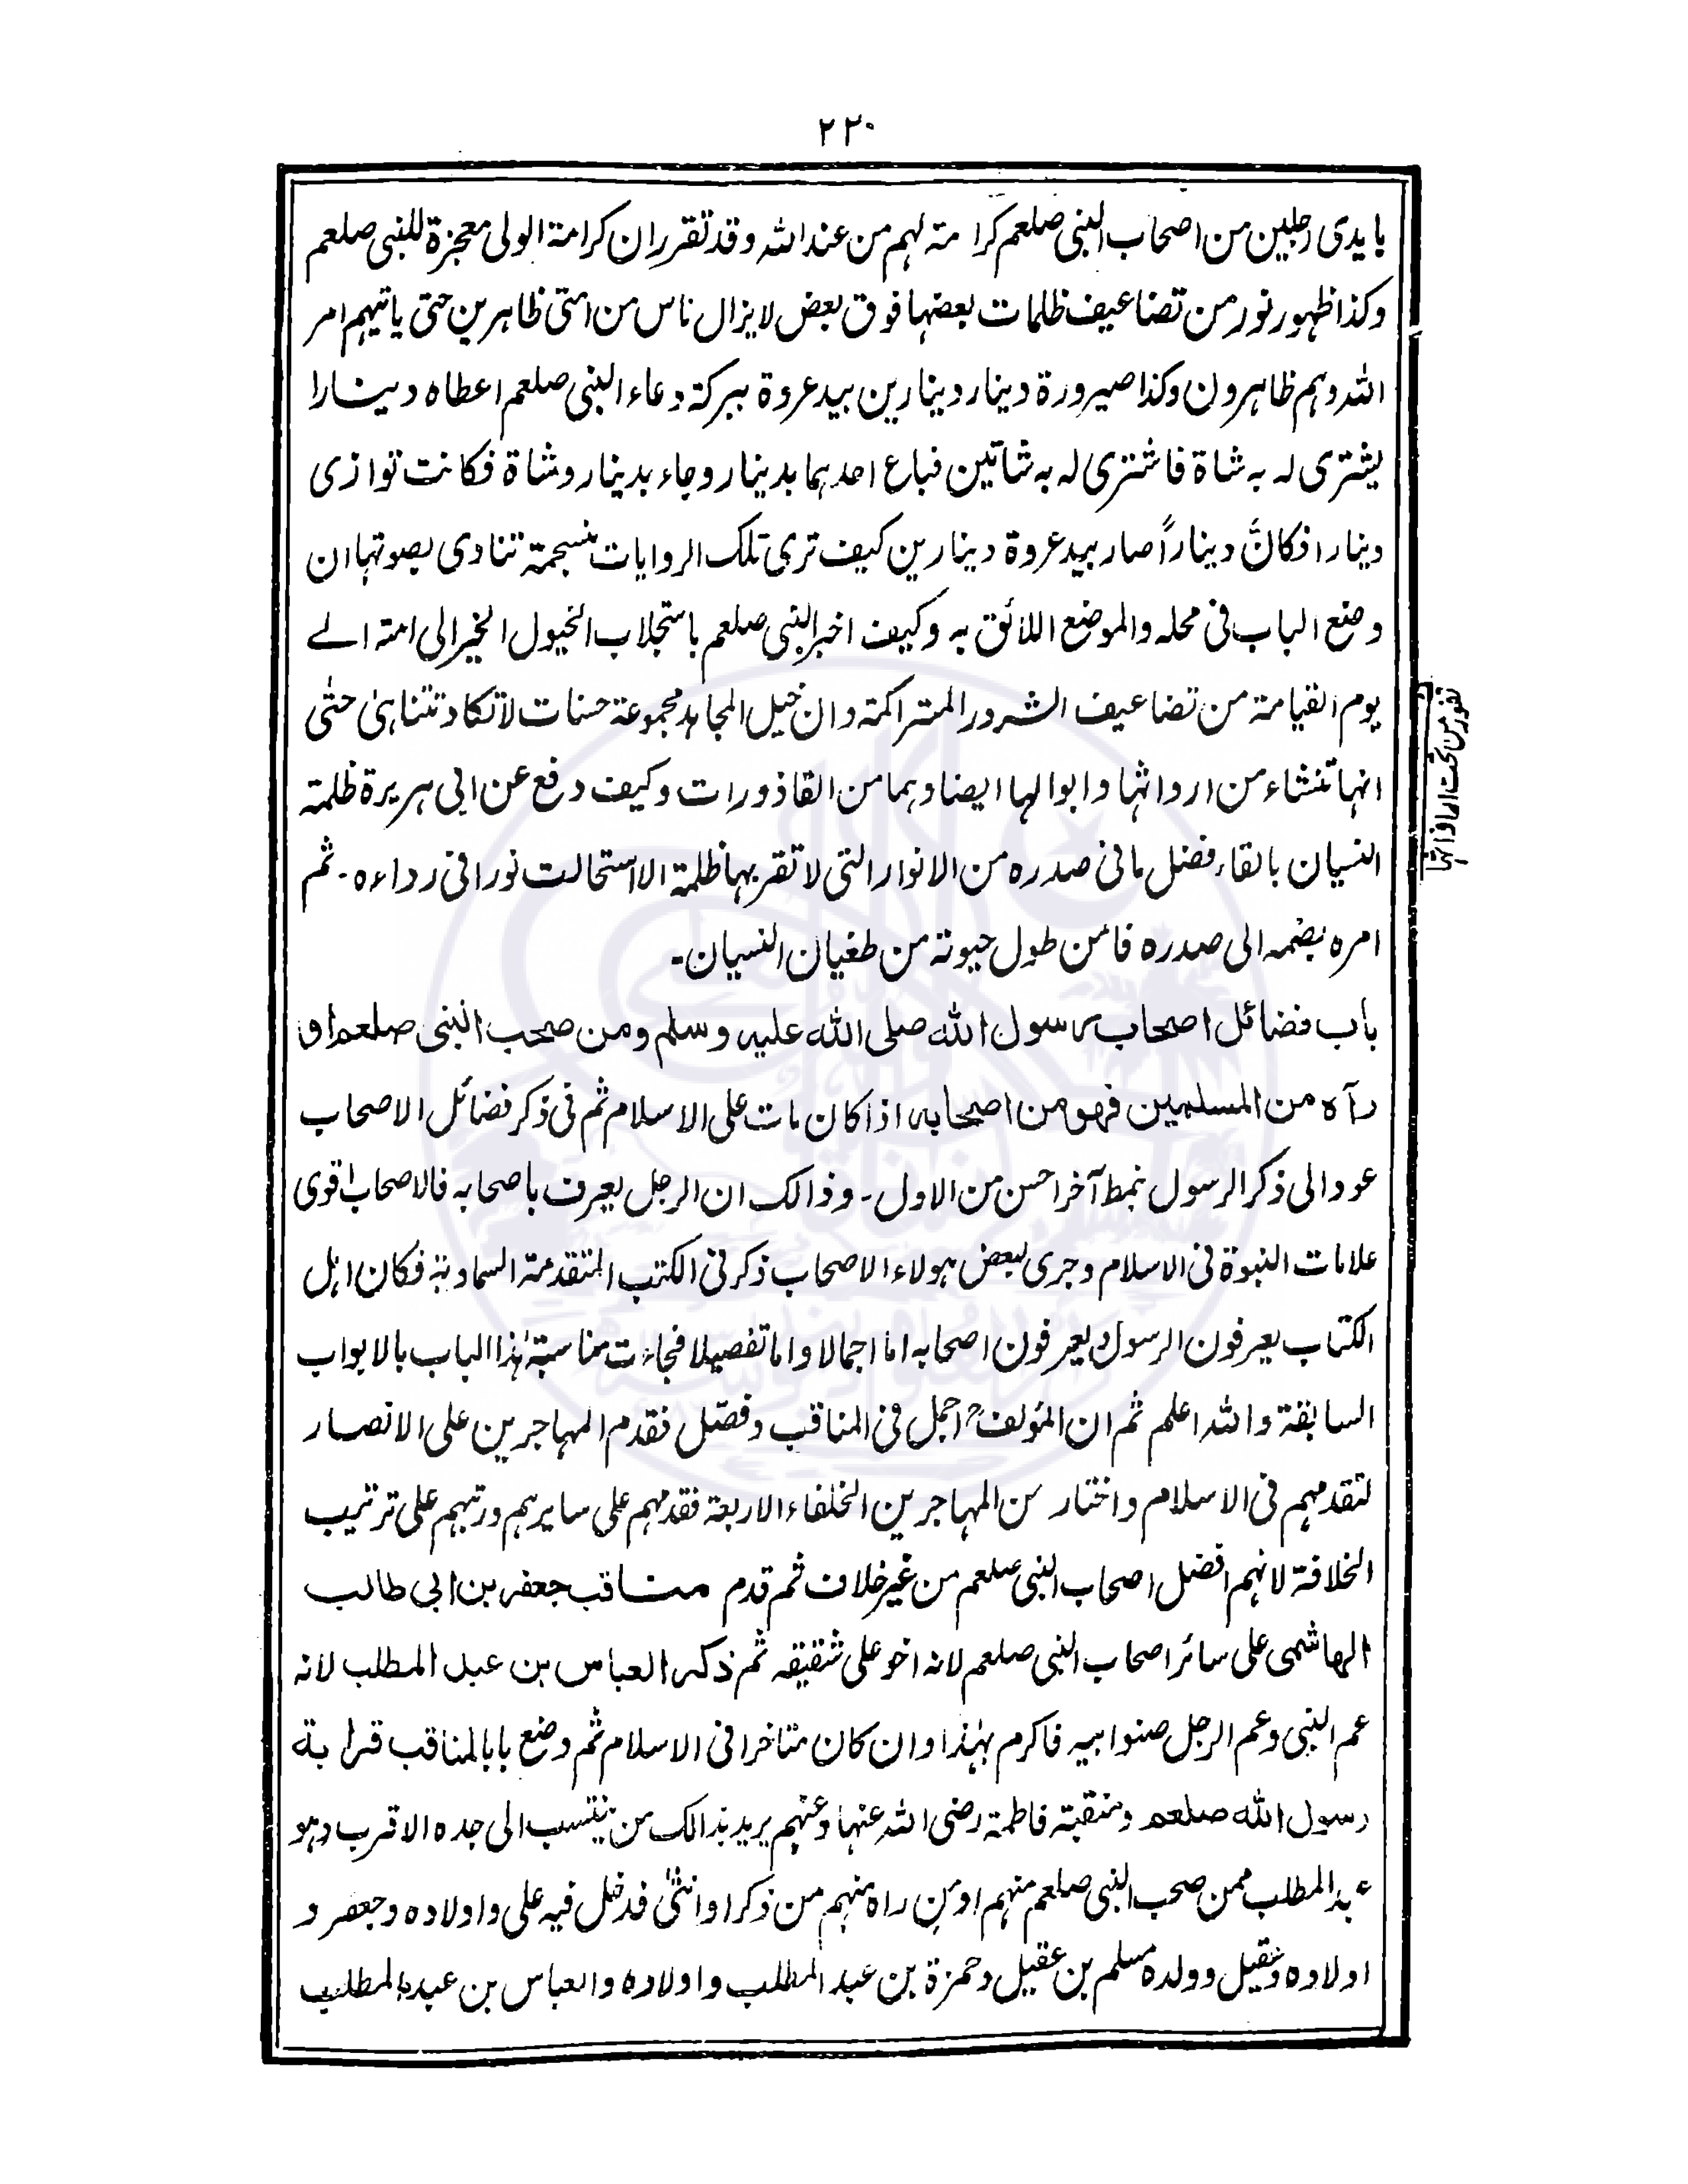 ۲۲۰
بایدی رجلین من اصحاب النبی صلعم کرامتہ لہم من عند اللہ وقد تقرر ان کرامۃ الولی معجزۃ للنبی صلعم
وکذا ظہور نور من تضاعیف ظلمات بعضہا فوق بعض لا یزال ناس من امتی ظاہرین حتی یاتیہم امر
اللہ وہم ظاہرون وکذا صیرورۃ دینار دینارین بید عروۃ ببرکۃ دعاء النبی صلعم اعطاہ دینارا
یشتری لہ بہ شاۃ فاشتری لہ بہ شاتین فباع احدہما بدینار وجاء بدینار وشاۃ فکانت توازی
دینارا فکانّ دیناراً صار بید عروۃ دینارین کیف تری تلک الروایات منسجمۃ تنادی بصوتہا ان
وضع الباب فی محلہ والموضع اللائق بہ وکیف اخبر النبی صلعم باستجلاب الخیول الخیر الی امتہ الے
یوم القیامۃ من تضاعیف الشرور المتراکمۃ وان خیل المجاہد مجموعۃ حسنات لا تکاد تتناہیٰ حتٰی
انہا تنشاء من ارواثہا وابوالہا ایضا وہما من القاذورات وکیف دفع عن ابی ہریرۃ ظلمۃ
النسیان بالقاء فضل ما فی صدرہ من الانوار التی لا تقربہا ظلمۃ الا استحالت نورا فی رداءہ۔ ثم
امرہ بضمہ الی صدرہ فامن طول حیوتہ من طغیان النسیان۔
باب فضائل اصحاب رسول الله صلی الله علیہ وسلم ومن صحب النبی صلعم او
رآہ من المسلمین فهو من اصحابہ اذا کان مات علی الاسلام ثم فی ذکر فضائل الاصحاب
عود الی ذکر الرسول بنمط آخر احسن من الاول۔ وذالک ان الرجل یعرف باصحابہ فالاصحاب اقوی
علامات النبوۃ فی الاسلام وجری لبعض ہولاء الاصحاب ذکر فی الکتب المتقدمۃ السماویۃ فکان اہل
الکتاب یعرفون الرسول ویعرفون اصحابہ اما اجمالا واما تفصیلا فجاءت مناسبۃ ہٰذا الباب بالابواب
السابقۃ واللہ اعلم ثم ان المؤلفؒ اجمل فی المناقب وفصّل فقدم المہاجرین علی الانصار
لتقدمہم فی الاسلام واختار من المہاجرین الخلفاء الاربعۃ فقدمہم علی سایرہم ورتبہم علی ترتیب
الخلافۃ لانہم افضل اصحاب النبی صلعم من غیر خلاف ثم قدم مناقب جعفر بن ابی طالب
الہاشمی علی سائر اصحاب النبی صلعم لانہ اخو علی شقیقہ ثم ذکر العباس بن عبد المطلب لانہ
عم النبی وعم الرجل صنو ابیہ فاکرم بہٰذا وان کان متاخرا فی الاسلام ثم وضع بابا لمناقب قرابة
رسول الله صلعم ومنقبۃ فاطمۃ رضی اللہ عنہا وعنہم یرید بذالک من ینتسب الی جدہ الاقرب وہو
عبد المطلب ممن صحب النبی صلعم منہم او من راہ منہم من ذکر او انثٰی فدخل فیہ علی واولادہ وجعفر و
اولادہ وعقیل وولدہ مسلم بن عقیل وحمزۃ بن عبد المطلب واولادہ والعباس بن عبد المطلب